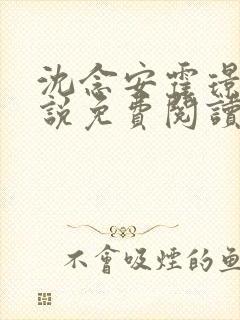 沈念安霆璟
說免費閱讀
不會吸煙的魚